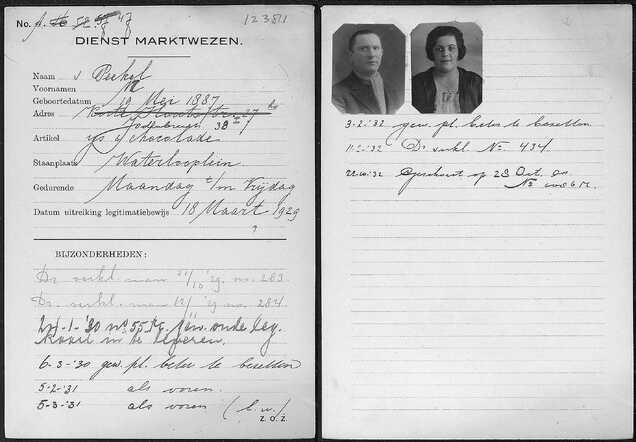 No. 47
12381
DIENST MARKTWEZEN.
Naam s Perkel
Voornamen M
Geboortedatum 19 Mei 1887
Adres
38
Artikel ys & chocolade
Staanplaats Waterlooplein
Gedurende Maandag t/m Vrijdag
Datum uitreiking legitimatiebewijs 18 Maart 1929
?
BIJZONDERHEDEN:
Dr. verkl. man 31/10 '29 no. 283
Dr. verkl. man 12/ '29 no. 284
24-1-'30 no 55 M. oude leg.
kaart in te leveren.
6-3-'30 gew. pl. beter te bezetten
5-2-'31 als voren.
5-3-'31 als voren (l.w.)
z.o.z.
3-2-'32 gew. pl. beter te bezetten
11-2-'32 Dr. verkl. No. 434
22-10-'32 op 28 Oct.
No